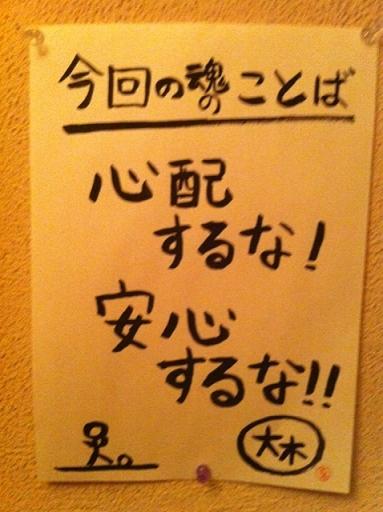 今回の魂のことば
心配
するな!
安心
するな!!
大木